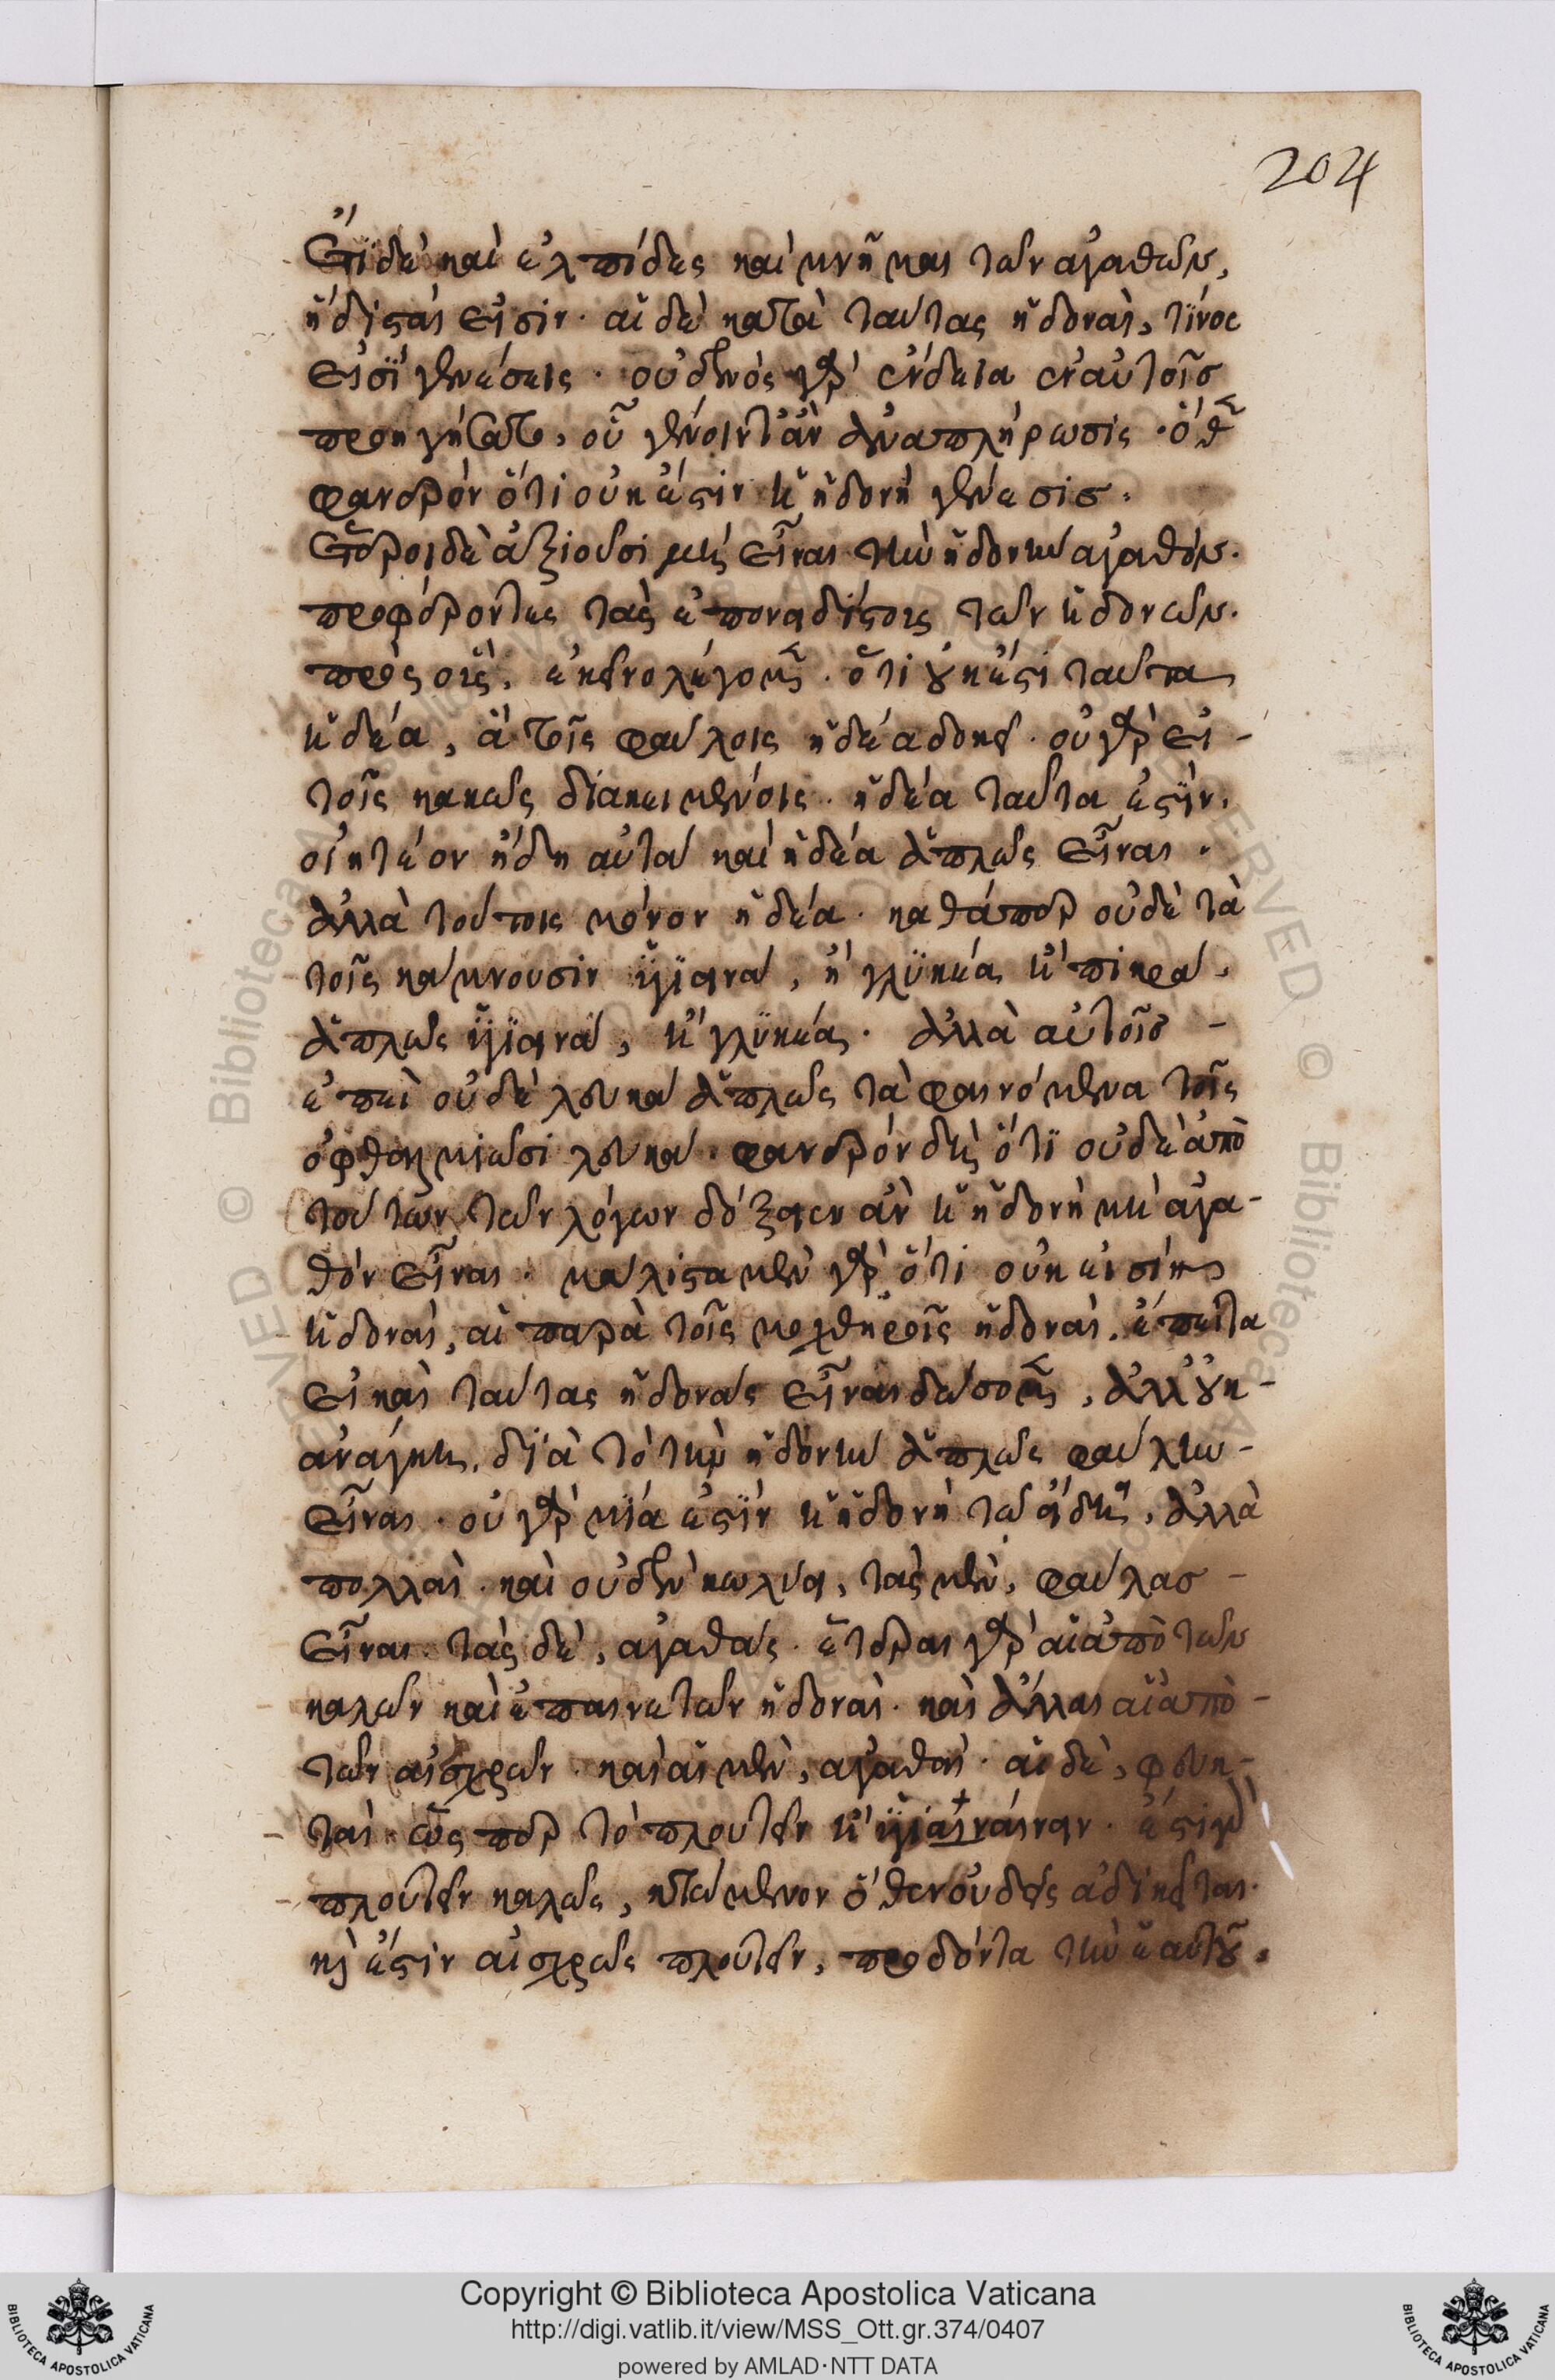 204
Ἔτι δὲ καὶ ἐλπίδες καὶ μνῆμαι τῶν ἀγαθῶν,
ἥδισται εἰσίν· αἱ δὲ κατὰ ταύτας ἡδοναὶ, τίνος
εἰσὶ γενέσεις· οὐδενὸς γὰρ ἔνδεια ἐν αὐτοῖς
προηγήσατο, οὗ γένοιντ' ἂν ἀναπλήρωσις· ὅθεν
φανερὸν ὅτι οὐκ ἔστιν ἡ ἡδονὴ γένεσις.
Ἕτεροι δὲ ἀξιοῦσι μὴ εἶναι τὴν ἡδονὴν ἀγαθόν.
προφέροντες τὰς ἐπονειδίστους τῶν ἡδονῶν.
πρὸς οἷς, ἐκεῖνο λέγομεν· ὅτι οὐκ ἔστι ταῦτα
ἡδέα, ἃ τοῖς φαύλοις ἡδέα δοκεῖ· οὐ γὰρ εἰ
τοῖς κακῶς διακειμένοις ἡδέα ταῦτα ἐστὶν,
οἰητέον ἤδη αὐτὰ καὶ ἡδέα ἁπλῶς εἶναι.
ἀλλὰ τούτοις μόνον ἡδέα· καθάπερ οὐδὲ τὰ
τοῖς κάμνουσιν ὑγιεινὰ, ἢ γλυκέα ἢ πικρὰ,
ἁπλῶς ὑγιεινὰ, ἢ γλυκέα· ἀλλὰ αὐτοῖς -
ἐπεὶ οὐδὲ λευκὰ ἁπλῶς τὰ φαινόμενα τοῖς
ὀφθαλμιῶσι λευκά· φανερὸν δὴ ὅτι οὐδὲ ἀπὸ
τούτων τῶν λόγων δόξειεν ἂν ἡ ἡδονὴ μὴ ἀγα-
θὸν εἶναι· μάλιστα μὲν γὰρ ὅτι οὐκ εἰσί πως
ἡδοναὶ, αἱ παρὰ τοῖς μοχθηροῖς ἡδοναί. ἔπειτα
εἰ καὶ ταύτας ἡδονὰς εἶναι δώσομεν, ἀλλ' οὐκ -
ἀνάγκη, διὰ τὸ τὴν ἡδονὴν ἁπλῶς φαύλην -
εἶναι· οὐ γὰρ μία ἐστὶν ἡ ἡδονὴ τῷ εἴδει, ἀλλὰ
πολλαὶ· καὶ οὐδὲν κωλύει, τὰς μὲν, φαύλας -
εἶναι. τὰς δὲ, ἀγαθάς· ἕτεραι γὰρ αἱ ἀπὸ τῶν
καλῶν καὶ ἐπαινετῶν ἡδοναὶ· καὶ ἄλλαι αἱ ἀπὸ -
τῶν αἰσχρῶν· καὶ αἱ μὲν, ἀγαθαὶ· αἱ δὲ, φευκ-
ταί· ὥσπερ τὸ πλουτεῖν ἢ ὑγιαινάινειν· ἔστι μὲν
πλουτεῖν καλῶς, κτώμενον ὅθεν οὐδεὶς ἀδικεῖται·
καὶ ἔστιν αἰσχρῶς πλουτεῖν, προδόντα τὴν ἑαυτοῦ.
Copyright © Biblioteca Apostolica Vaticana
http://digi.vatlib.it/view/MSS_Ott.gr.374/0407
powered by AMLAD·NTT DATA